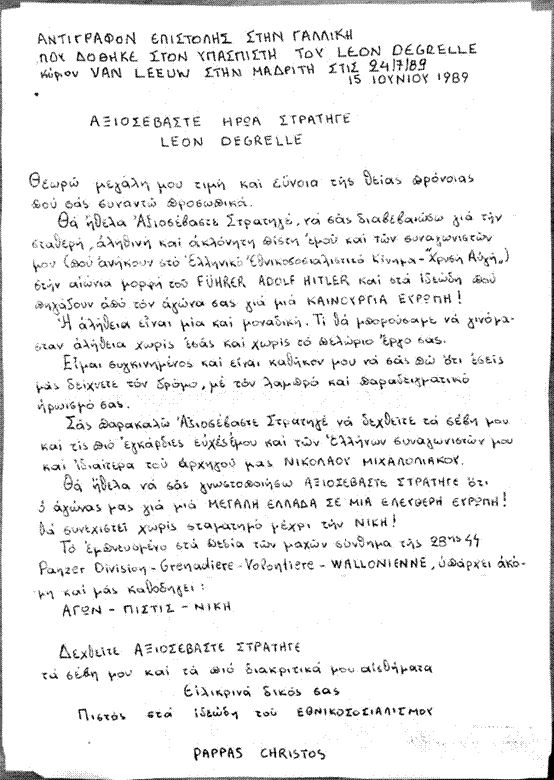 ΑΝΤΙΓΡΑΦΟΝ ΕΠΙΣΤΟΛΗΣ ΣΤΗΝ ΓΑΛΛΙΚΗ
ΠΟΥ ΔΟΘΗΚΕ ΣΤΟΝ ΥΠΑΣΠΙΣΤΗ ΤΟΥ LEON DEGRELLE
κύριον VAN LEEUW ΣΤΗΝ ΜΑΔΡΙΤΗ ΣΤΙΣ 24/7/89
15 ΙΟΥΝΙΟΥ 1989
ΑΞΙΟΣΕΒΑΣΤΕ ΗΡΩΑ ΣΤΡΑΤΗΓΕ
LEON DEGRELLE
Θεωρώ μεγάλη μου τιμή και εύνοια τής θείας πρόνοιας
πού σάς συναντώ προσωπικά.
Θά ήθελα Ἀξιοσέβαστε Στρατηγέ, νά σάς διαβεβαιώσω γιά τήν
σταθερή, ἀληθινή καί ἀκλόνητη πίστη ἐμού καί τών συναγωνιστών
μου (πού ανήκουν στό Ἑλληνικό Ἐθνικοσοσιαλιστικό Κίνημα-"Χρυσή Αὐγή")
στήν αἰώνια μορφή τοῦ FÜHRER ADOLF HITLER καί στά ἰδεώδη πού
πηγάζουν ἀπό τόν ἀγώνα σας γιά μιά ΚΑΙΝΟΥΡΓΙΑ ΕΥΡΩΠΗ!
Ἡ ἀλήθεια εἶναι μία καί μοναδική. Τί θά μπορούσαμε νά γινόμα-
σταν ἀλήθεια χωρίς ἐσάς καί χωρίς τό πελώριο ἔργο σας.
Εἶμαι συγκινημένος καί εἶναι καθῆκον μου νά σάς πῶ ὅτι ἐσείς
μάς δείχνετε τόν δρόμο, μέ τόν λαμπρό καί παραδειγματικό
ἡρωισμό σας.
Σάς παρακαλώ Ἀξιοσέβαστε Στρατηγέ νά δεχθείτε τά σέβη μου
καί τίς πιό ἐγκάρδιες εὐχές ἐμου καί τών Ἑλλήνων συναγωνιστών μου
καί ἰδιαίτερα τοῦ ἀρχηγοῦ μας ΝΙΚΟΛΑΟΥ ΜΙΧΑΛΟΛΙΑΚΟΥ.
Θά ἤθελα νά σάς γνωστοποιήσω ΑΞΙΟΣΕΒΑΣΤΕ ΣΤΡΑΤΗΓΕ ὅτι
ὁ ἀγώνας μας γιά μιά ΜΕΓΑΛΗ ΕΛΛΑΔΑ ΣΕ ΜΙΑ ΕΛΕΥΘΕΡΗ ΕΥΡΩΠΗ!
θά συνεχιστεί χωρίς σταματημό μέχρι τήν ΝΙΚΗ!
Τό ἐμπνευσμένο στά πεδία τών μαχών σύνθημα τής 28ης 44
Panzer Division-Grenadiere-Volontiere-WALLONIENNE, ὑπάρχει ἀκό-
μη καί μάς καθοδηγεί:
ΑΓΩΝ - ΠΙΣΤΙΣ - ΝΙΚΗ
Δεχθείτε ΑΞΙΟΣΕΒΑΣΤΕ ΣΤΡΑΤΗΓΕ
τά σέβη μου καί τά πιό διακριτικά μου αἰσθήματα
Εἰλικρινά δικός σας
Πιστός στά ἰδεώδη τοῦ ΕΘΝΙΚΟΣΟΣΙΑΛΙΣΜΟΥ
PAPPAS CHRISTOS